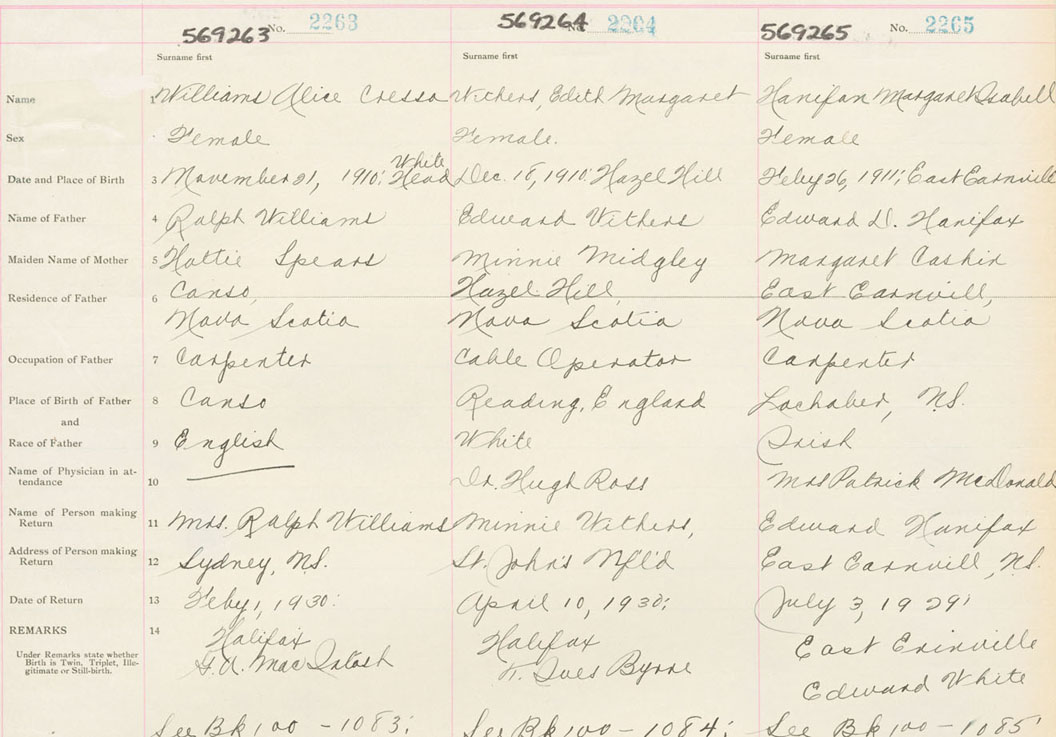 569263 No. 2263 569264 No. 2264 569265 No. 2265
Surname first Surname first Surname first
Name 1 Williams Alice Cressa Withers, Edith Margaret Hanifan Margaret Isabell
Sex Female Female. Female
White
Date and Place of Birth 3 November 21, 1910: Head Dec. 18, 1910: Hazel Hill Feby 26, 1911; East Earnvill
Name of Father 4 Ralph Williams Edward Withers Edward D. Hanifax
Maiden Name of Mother 5 Hattie Spears Minnie Midgley Margaret Cashin
Residence of Father 6 Canso, Hazel Hill, East Earnvill,
Nova Scotia Nova Scotia Nova Scotia
Occupation of Father 7 Carpenter Cable Operator Carpenter
Place of Birth of Father 8 Canso Reading, England Lochaber, N.S.
and
Race of Father 9 English White Irish
Name of Physician in at-
tendance 10 Dr. Hugh Ross Mrs Patrick McDonald
Name of Person making
Return 11 Mrs. Ralph Williams Minnie Withers, Edward Hanifax
Address of Person making
Return 12 Sydney, N.S. St. John's Nfl'd East Earnvill, N.S.
Date of Return 13 Feby 1, 1930: April 10, 1930; July 3, 1929'
REMARKS 14 Halifax Halifax East Erinville
Under Remarks state whether
Birth is Twin, Triplet, Ille-
gitimate or Still-birth.
MacIntosh Ives Byrne Edward White
See Bk 100 - 1083; See Bk 100 - 1084; See Bk 100 - 1085'